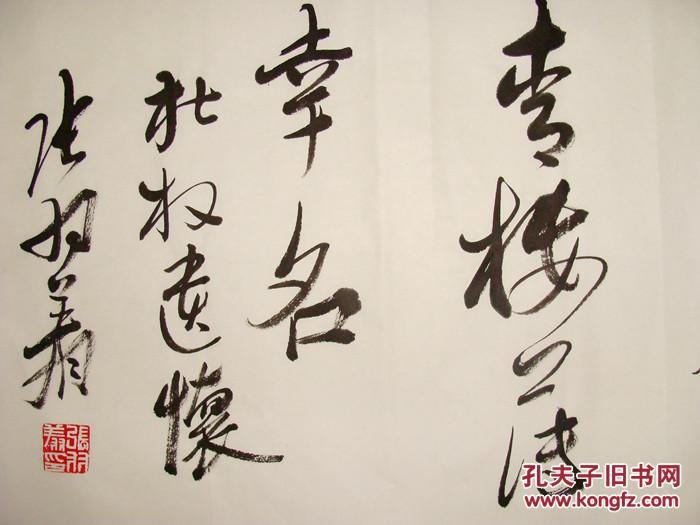 青楼薄
幸名
杜牧遣懷
张羽
張羽
印
孔夫子旧书网
www.kongfz.com